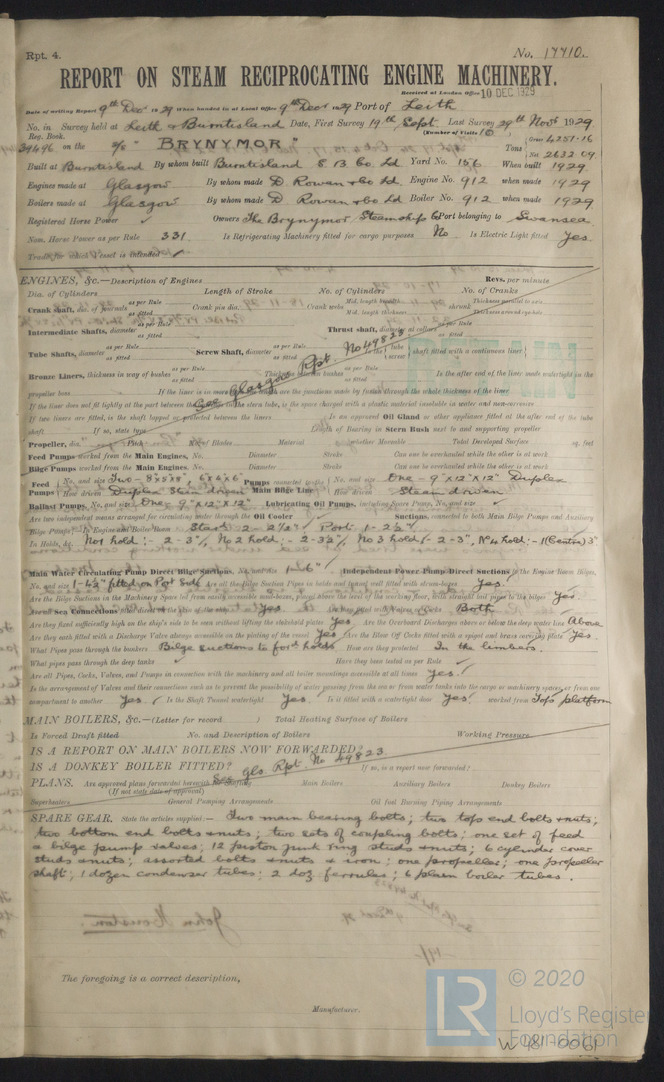 Rpt. 4. No. 17710.
REPORT ON STEAM RECIPROCATING ENGINE MACHINERY.
Received at London Office 10 DEC 1929
Date of writing Report 9th Dec 1929 When handed in at Local Office 9th Dec 1929 Port of Leith
No. in Survey held at Leith & Burntisland Date, First Survey 19th Sept. Last Survey 29th Novr 1929
Reg. Book. (Number of Visits 16
39496 on the s/s "BRYNYMOR" Tons Gross 4251.16
Net 2632.09
Built at Burntisland By whom built Burntisland S B Co. Ld Yard No. 156 When built 1929
Engines made at Glasgow By whom made D Rowan & Co Ld Engine No. 912 when made 1929
Boilers made at Glasgow By whom made D Rowan & Co Ld Boiler No. 912 when made 1929
Registered Horse Power Owners The Brynymor Steamship Co Port belonging to Swansea
Nom. Horse Power as per Rule 331 Is Refrigerating Machinery fitted for cargo purposes No Is Electric Light fitted Yes
Trade for which Vessel is intended
ENGINES, &c.—Description of Engines Revs. per minute
Dia. of Cylinders Length of Stroke No. of Cylinders No. of Cranks
Crank shaft, dia. of journals as per Rule as fitted Crank pin dia. Crank webs Mid. length breadth Mid. length thickness shrunk Thickness parallel to axis Thickness around eye-hole
Intermediate Shafts, diameter as per Rule as fitted Thrust shaft, diameter at collars as per Rule as fitted
Tube Shafts, diameter as per Rule as fitted Screw Shaft, diameter as per Rule as fitted Is the tube screw shaft fitted with a continuous liner
See Glasgow Rpt. No 49823
Bronze Liners, thickness in way of bushes as per Rule as fitted Thickness between bushes as per Rule as fitted Is the after end of the liner made watertight in the
propeller boss If the liner is in more than one length are the junctions made by fusion through the whole thickness of the liner
If the liner does not fit tightly at the part between the bushes in the stern tube, is the space charged with a plastic material insoluble in water and non-corrosive
If two liners are fitted, is the shaft lapped or protected between the liners Is an approved Oil Gland or other appliance fitted at the after end of the tube
shaft If so, state type Length of Bearing in Stern Bush next to and supporting propeller
Propeller, dia. Pitch No. of Blades Material whether Moveable Total Developed Surface sq. feet
Feed Pumps worked from the Main Engines, No. Diameter Stroke Can one be overhauled while the other is at work
Bilge Pumps worked from the Main Engines, No. Diameter Stroke Can one be overhauled while the other is at work
Feed Pumps No. and size Two - 8"x8"x8", 6"x6"x6" Pumps connected to the Main Bilge Line No. and size One - 9"x12"x12" Duplex
How driven Duplex Steam driven How driven Steam driven
Ballast Pumps, No. and size One - 9"x12"x12" Lubricating Oil Pumps, including Spare Pump, No. and size
Are two independent means arranged for circulating water through the Oil Cooler Suctions, connected to both Main Bilge Pumps and Auxiliary
Bilge Pumps;—In Engine and Boiler Room Starb: 2 - 2½" Port: 1 - 2½"
In Holds, &c. No 1 hold:- 2 - 3", No 2 hold:- 2 - 3½", No 3 hold:- 2 - 3", No 4 hold:- 1 (Centre) 3"
Main Water Circulating Pump Direct Bilge Suctions, No. and size Independent Power Pump Direct Suctions to the Engine Room Bilges,
No. and size 1 - 4½" fitted on Port Side Are all the Bilge Suction Pipes in holds and tunnel well fitted with strum-boxes Yes.
Are the Bilge Suctions in the Machinery Space led from easily accessible mud-boxes, placed above the level of the working floor, with straight tail pipes to the bilges Yes
Are all Sea Connections fitted direct on the skin of the ship Yes. Are they fitted with Valves or Cocks Both
Are they fixed sufficiently high on the ship's side to be seen without lifting the stokehold plates Yes. Are the Overboard Discharges above or below the deep water line Above
Are they each fitted with a Discharge Valve always accessible on the plating of the vessel Yes Are the Blow Off Cocks fitted with a spigot and brass covering plate Yes.
What Pipes pass through the bunkers Bilge suctions to ford holds How are they protected In the limbers.
What pipes pass through the deep tanks Have they been tested as per Rule
Are all Pipes, Cocks, Valves, and Pumps in connection with the machinery and all boiler mountings accessible at all times Yes.
Is the arrangement of Valves and their connections such as to prevent the possibility of water passing from the sea or from water tanks into the cargo or machinery spaces, or from one
compartment to another Yes. Is the Shaft Tunnel watertight Yes. Is it fitted with a watertight door Yes worked from Top platform
MAIN BOILERS, &c.—(Letter for record ) Total Heating Surface of Boilers
Is Forced Draft fitted No. and Description of Boilers Working Pressure
IS A REPORT ON MAIN BOILERS NOW FORWARDED?
IS A DONKEY BOILER FITTED? If so, is a report now forwarded?
See Gls Rpt. No 49823
PLANS. Are approved plans forwarded herewith for Shafting Main Boilers Auxiliary Boilers Donkey Boilers
(If not state date of approval)
Superheaters General Pumping Arrangements Oil fuel Burning Piping Arrangements
SPARE GEAR. State the articles supplied:— Two main bearing bolts; two top end bolts & nuts;
two bottom end bolts & nuts; two sets of coupling bolts; one set of feed
& bilge pump valves; 12 piston junk ring studs & nuts; 6 cylinder cover
studs & nuts; assorted bolts & nuts & iron; one propeller; one propeller
shaft; 1 dozen condenser tubes; 2 doz ferrules; 6 plain boiler tubes.
The foregoing is a correct description,
Manufacturer.
© 2020
Lloyd's Register
Foundation
W981-0061